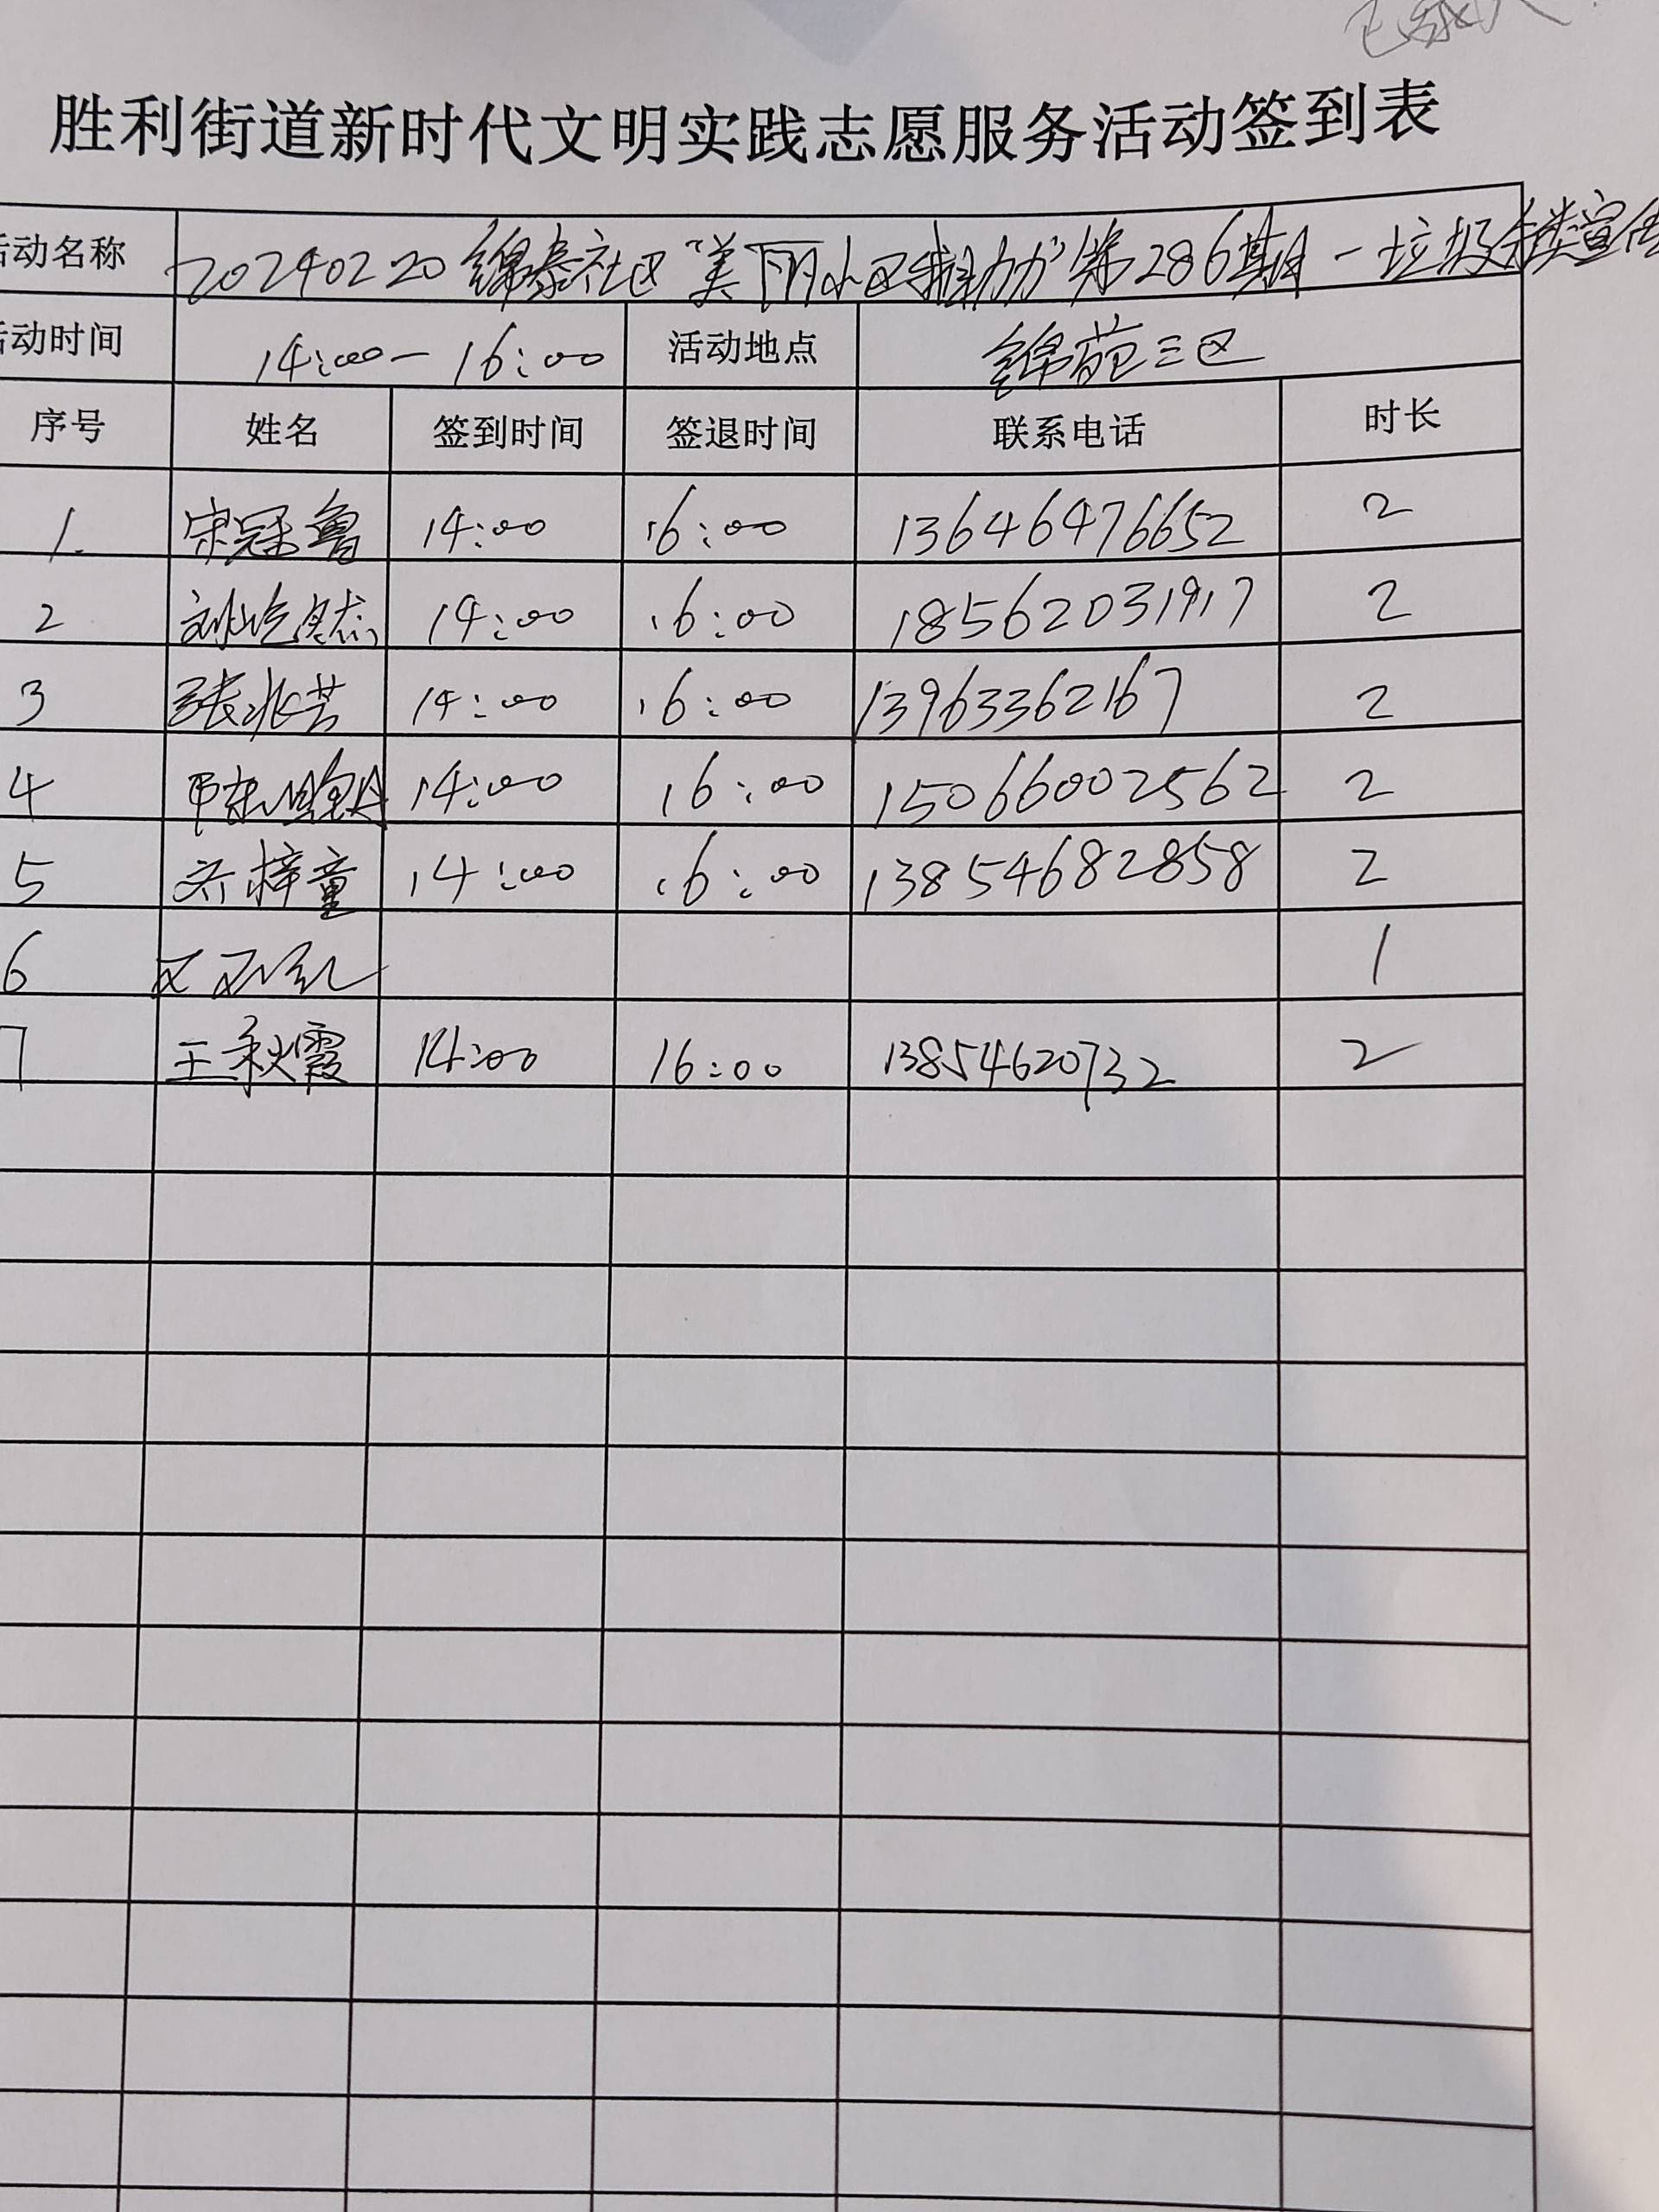 胜利街道新时代文明实践志愿服务活动签到表
活动名称 20240220锦泰社区“美丽小区我助力”第286期-垃圾分类宣传
活动时间 14:00-16:00 活动地点 锦苑三区
序号 姓名 签到时间 签退时间 联系电话 时长
1. 宋冠鲁 14:00 16:00 13646476652 2
2 14:00 16:00 18562031917 2
3 张兆芳 14:00 16:00 13963362167 2
4 14:00 16:00 15066002562 2
5 齐梓童 14:00 16:00 13854682858 2
6 1
7 王秋霞 14:00 16:00 13854620732 2